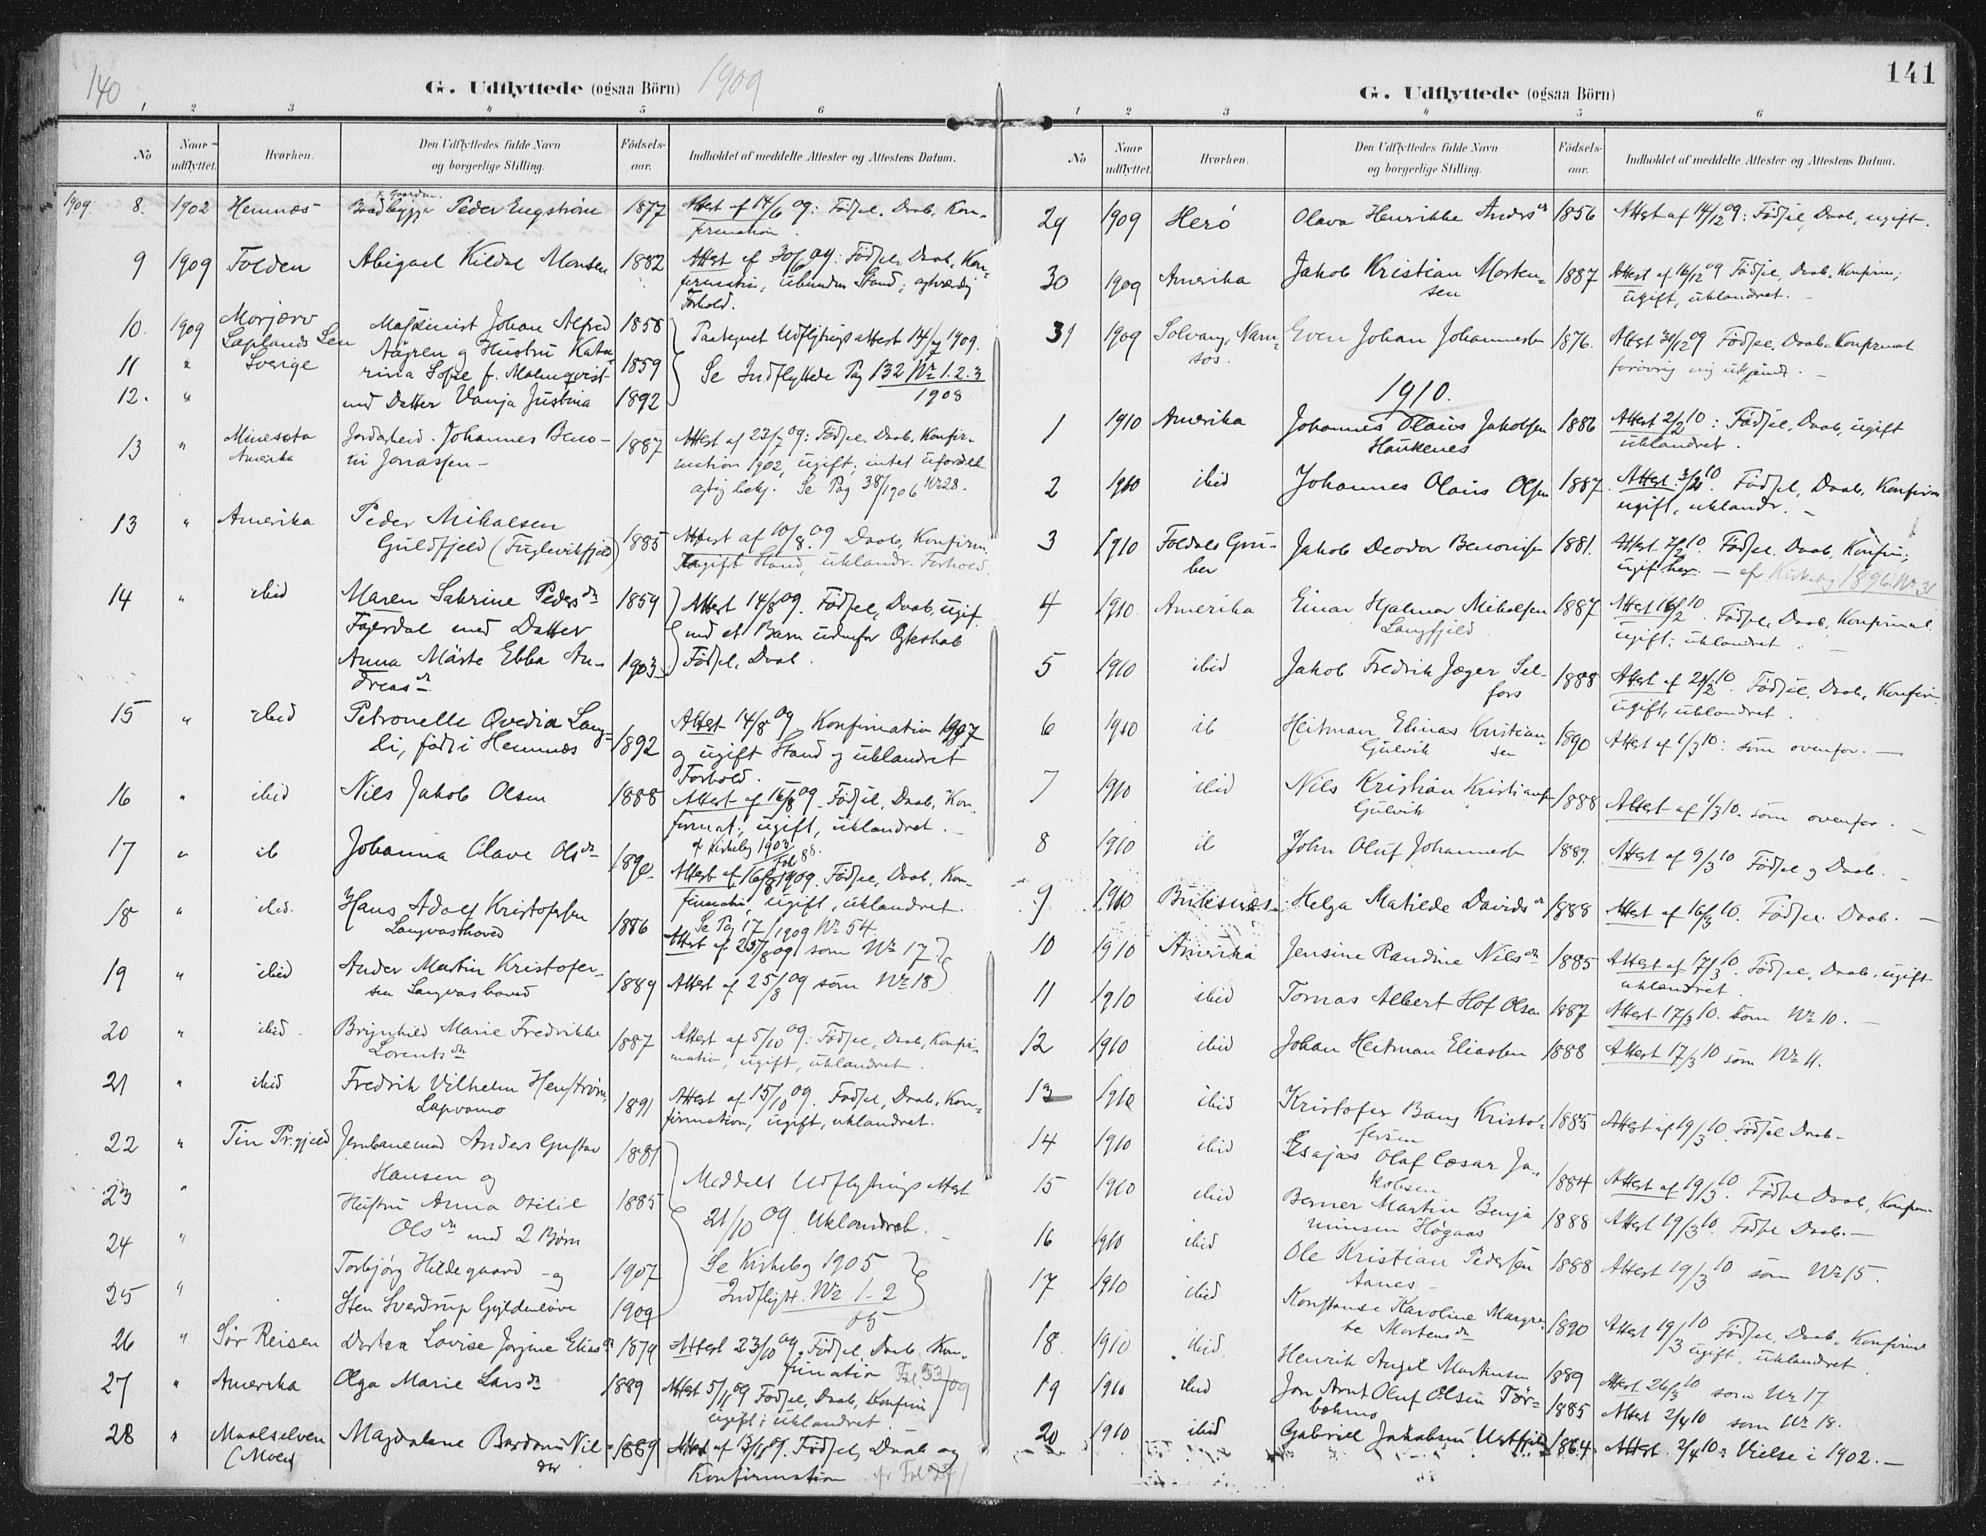 140
G. Udflyttede (ogsaa Börn) 1909
1 2 3 4 5 6
No Naar udflyttet. Hvorhen. Den Udflyttedes fulde Navn og borgerlige Stilling. Födsels-aar. Indholdet af meddelte Attester og Attestens Datum.
1909 8. 1902 Hemnæs Baadbygger Peder Engstrøm 1877 Attest af 14/6 09: Födsel, Daab, Kon-
firmation.
9 1909 Folden Abigael Kildal Monsen 1882 Attest af 30/6 09: Födsel, Daab, Kon-
firmation, ubunden Stand, agtværdig
Forhold.
10. 1909 Morjærv Maskinist Johan Alfred 1858 Paategnet Udflytningsattest 14/7 1909.
Laplands Len
11 " Sverige Aagren og Hustru Kata- 1859 Se Indflyttede Pag 132 Nr 1.2.3
rina Sofie f. Malmqvist 1908
12. " med Datter Vanja Justina 1892
13 " Minesota Jordarbeid. Johannes Beno- 1887 Attest af 23/7 09: Födsel, Daab, Konfir-
Amerika ni Jonassen mation 1902, ugift, intet ufordel-
agtig bekj. Se Pag 38/1906 Nr 28.
13 " Amerika Peder Mikalsen 1885 Attest af 10/8 09 Daab, Konfirm.
Guldfjeld (Fuglevikfjeld) ugift Stand, uklandr. Forhold.
14 " ibid Maren Sabrine Peders dr 1859 Attest 14/8 09. Födsel, Daab, ugif
Fagerdal med Datter med et Barn udenfor Egteskab
Anna Märte Ebba An- 1903 Födsel, Daab.
dreas dr
15 " ibid Petronelle Ovedia Lang- 1892 Attest 14/8 09 Konfirmation 1907
li, født i Hemnæs og ugift Stand og uklandret
Forhold.
16 " ibid Nils Jakob Olsen 1888 Attest af 16/8 09. Födsel, Daab, Kon-
firmat., ugift, uklandret.
17 " ib Johanna Olave Ols dr 1890. Attest af 16/8 1909. Födsel, Daab, Kon-
firmation, ugift, uklandret.
18 " ibid. Hans Adolf Kristofersen 1886 Se Pag 17/1909 Nr 54.
Langvashoved Attest af 25/8 09 som Nr 17
19 " ibid Ander Martin Kristofer- 1889 Attest af 25/8 09 som Nr 18
sen Langvashoved
20 " ibid Brynhild Marie Fredrikke 1887 Attest af 5/10 09: Födsel, Daab, Konfir-
Lorents dr mation, ugift, uklandret.
21 " ibid Fredrik Vilhelm Henstrøm, 1891 Attest af 15/10 09. Födsel, Daab, Kon-
Lapvomo firmation, ugift, uklandret.
22 " Tin Pr.gjeld Jernbanemed Anders Gustav 1881
Hansen og Meddelt Udflytnings attest
23 " Hustru Anna Otilie 1885 21/10 09. Uklandret.
Ols dr med 2 Børn
24 " Torbjørg Hildegaard og 1907 Se Kirkebog 1905
25 " Sten Sverdrup Gyldenløve 1909 Indflytt. Nr 1-2
05
26 " Sør Reisen Dortea Lovise Jørgine Elias dr 1879 Attest 23/10 09. Födsel, Daab, Kon-
firmation Fol. 53/09
27 " Amerika Olga Marie Lars dr 1889 Attest 5/11 09 Födsel, Daab, Konfirm
ugift, uklandret
28 " Maalselven Magdalene Bardom Nil- 1889 Attest af 13/11 09. Födsel, Daab og
(Moen der Konfirmation
141
G. Udflyttede (ogsaa Börn)
1 2 3 4 5 6
No Naar udflyttet. Hvorhen. Den Udflyttedes fulde Navn og borgerlige Stilling. Födsels-aar. Indholdet af meddelte Attester og Attestens Datum.
29 1909 Herö Olava Henrikke Anders dr 1856 Attest af 14/12 09: Födsel, Daab, ugift.
30 1909 Amerika Jakob Kristian Morten- 1887 Attest af 16/12 09 Födsel, Daab, Konfirm,
sen ugift, uklandret.
31 1909 Solvang, Nam- Even Johan Johannesen 1876. Attest 31/12 09 Födsel, Daab, Konfirmat
sos forövrig mig ukjendt.
1910.
1 1910 Amerika Johannes Olaus Jakobsen 1886 Attest 2/2 10: Födsel, Daab, ugift
Haukenes uklandret.
2 1910 ibid Johannes Olaus Olsen 1887. Attest 3/2 10 Födsel, Daab, Konfirm
ugift, uklandr.
3 1910 Foldals Gru- Jakob Deodor Benonisen 1881. Attest 7/2 10. Födsel, Daab, Konfirm,
ber ugift her. af Kirkebog 1896 Nr 31
4 1910. Amerika Einar Hjalmar Mikalsen 1887 Attest 16/2 10. Födsel, Daab, Konfirmat.
Langfjeld ugift, uklandret.
5 1910 ibid Jakob Fredrik Jæger Sel- 1888 Attest af 21/2 10. Födsel, Daab, Konfirm
fors ugift, uklandret.
6 1910 ib Heitman Elinas Kristian- 1890 Attest af 1/3 10: som ovenfor.
Gulvik sen
7 1910 ibid Nils Kristian Kristiansen 1888 Attest af 1/3 10. som ovenfor.
Gulvik
8 1910 ib John Oluf Johannesen 1889. Attest af 9/3 10 Födsel og Daab.
9 1910 Buksnæs Helga Matilde Davids dr 1888 Attest af 16/3 10. Födsel. Daab.
10 1910 Amerika Jensine Randine Nils dr 1885 Attest af 17/3 10. Födsel, Daab, ugift
uklandret.
11 1910 ibid Tomas Albert Hof Olsen 1887 Attest 17/3 10. som Nr 10.
12 1910 ibid Johan Heitman Eliassen 1888 Attest 17/3 10 som Nr 11.
13 1910 ibid Kristofer Bang Kristo- 1885 Attest af 19/3 10. Födsel Daab
fersen
14 1910 ibid Esajas Olaf Cæsar Ja- 1884 Attest af 19/3 10. Födsel Daab, Konfirm
kobsen
15 1910 ibid Berner Martin Benja 1888 Attest 19/3 10. Födsel Daab.
minsen Högaas
16 1910 ibid Ole Kristian Pedersen 1888 Attest 19/3 10 som Nr 15.
Aanes
17 1910 ibid Konstanse Karoline Margre- 1890 Attest 19/3 10 Födsel, Daab, Konfirm
te Mortens dr ugift, uklandret.
18 1910 ibid. Henrik Angel Martinsen 1889 Attest 26/3 10 som Nr 17
19 1910 ibid Jon Arnt Oluf Olsen Tör- 1885 Attest 2/4 10 som Nr 18.
bakmo
20 1910 ibid Gabriel Jakobsen Urtfjeld 1864. Attest 2/4 10: Vielse i 1902.